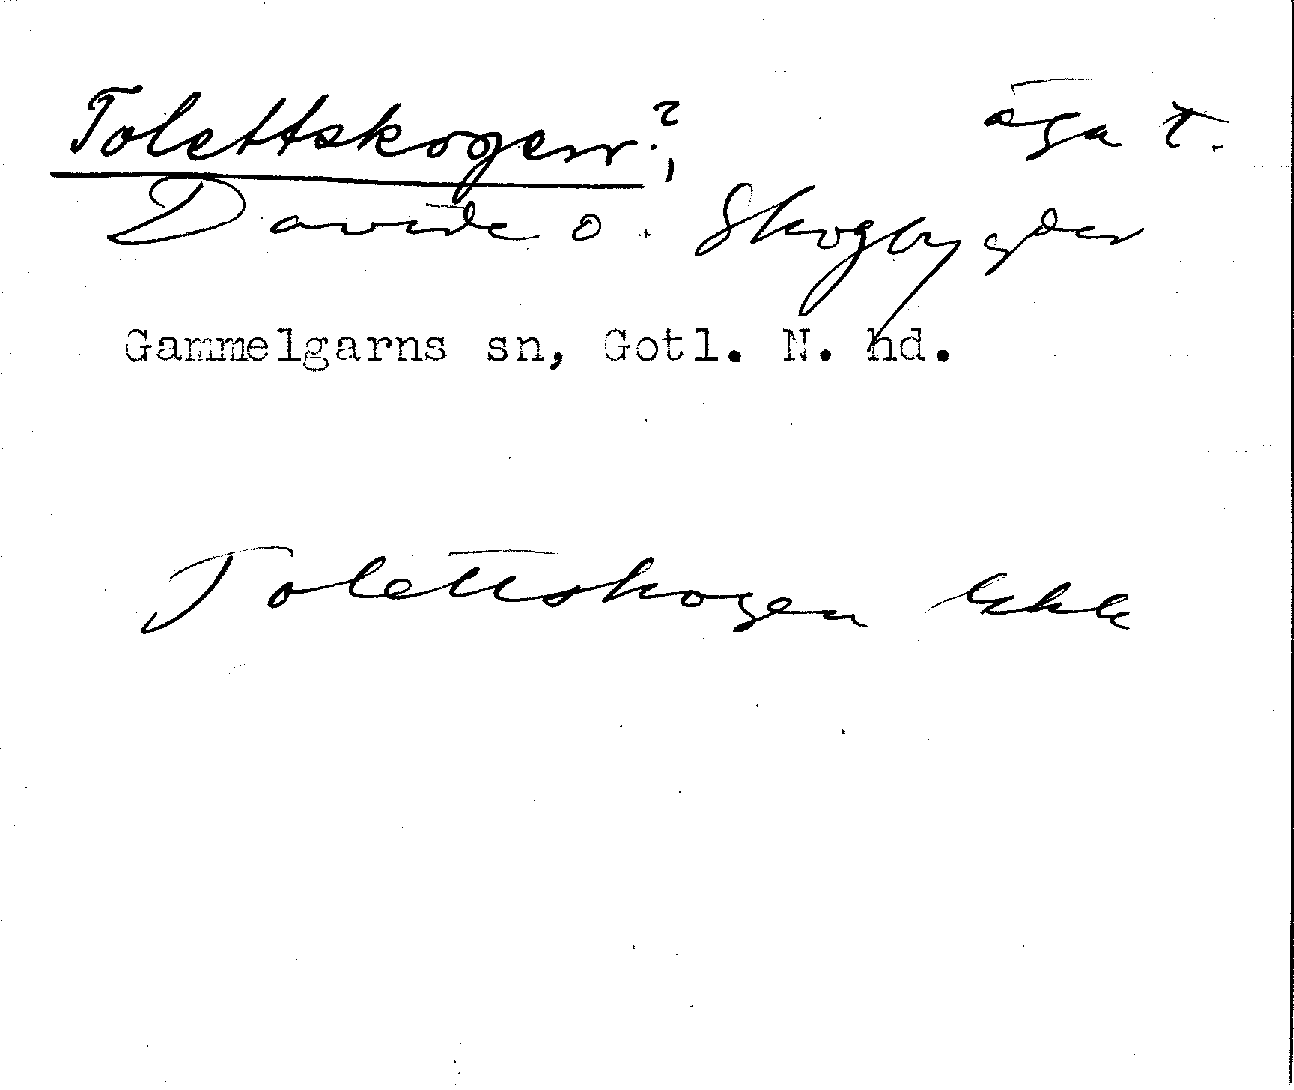 Tolettskogen?, äga t.
Davide o. Skogbygder
Gammelgarns sn, Gotl. N. hd.
Tolettskogen